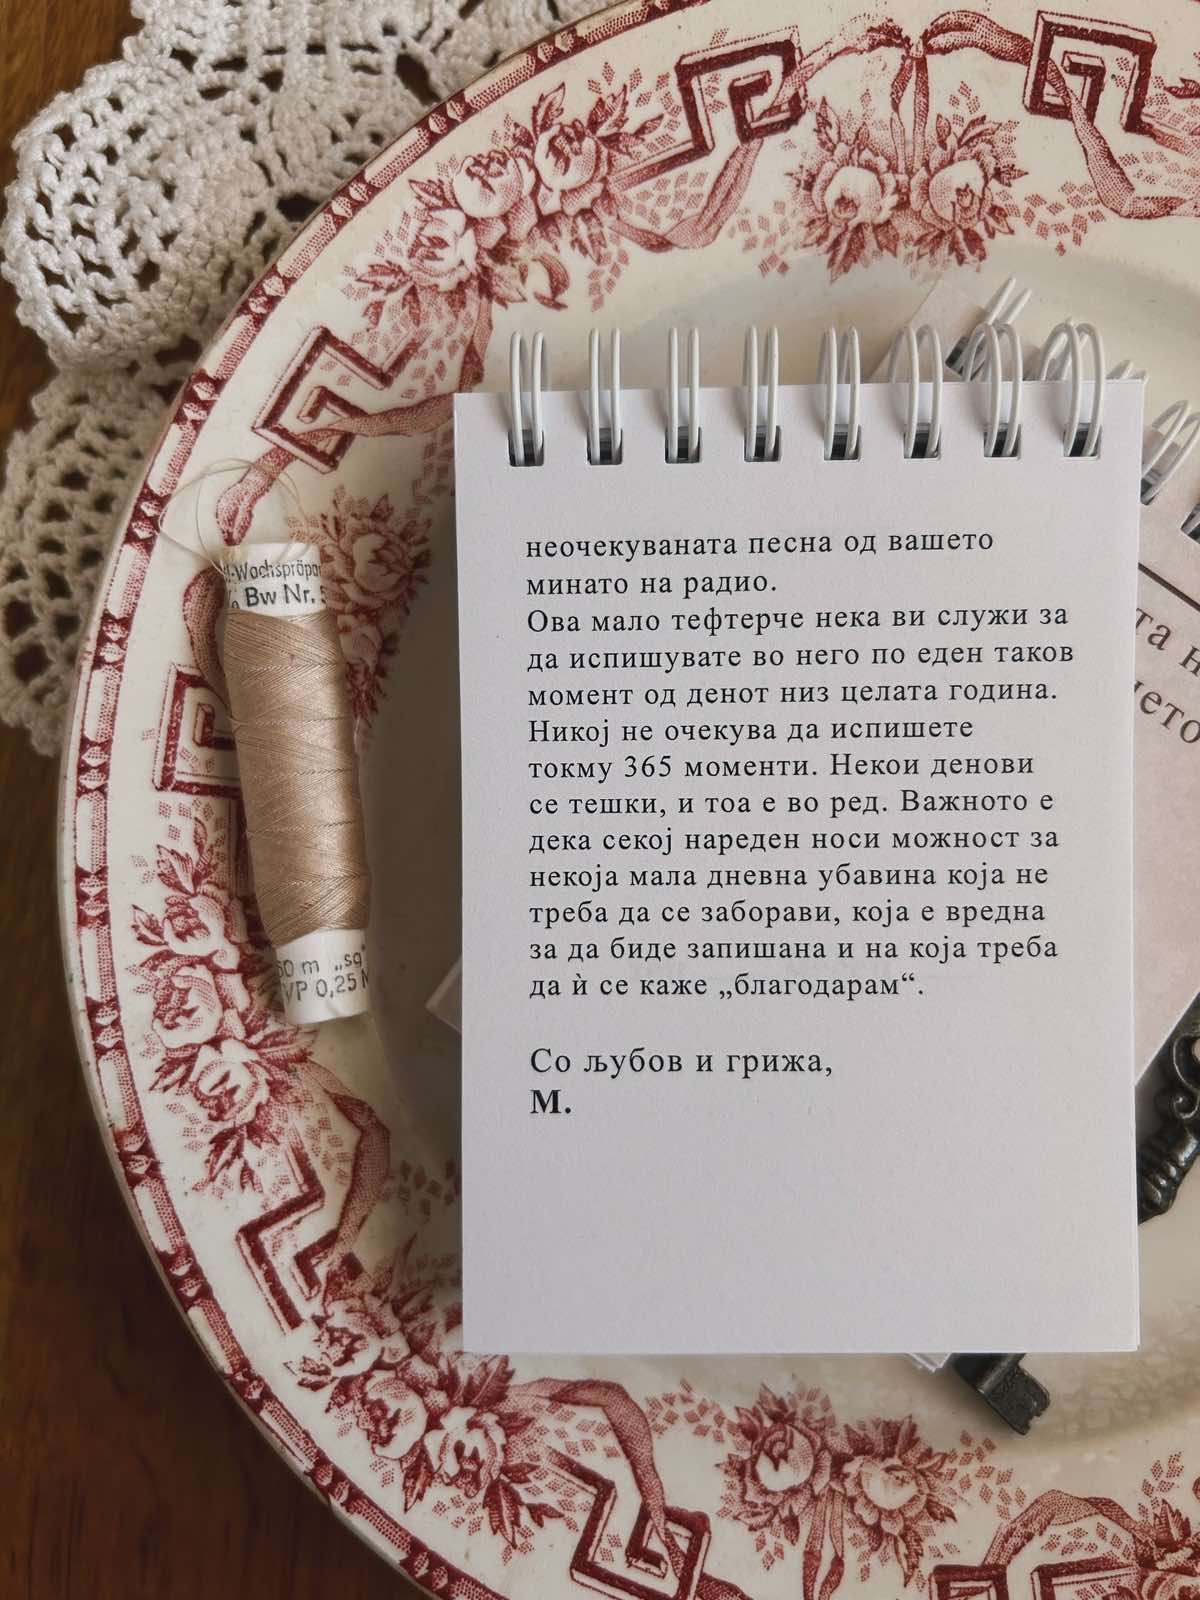 неочекуваната песна од вашето
минато на радио.
Ова мало тефтерче нека ви служи за
да испишувате во него по еден таков
момент од денот низ целата година.
Никој не очекува да испишете
токму 365 моменти. Некои денови
се тешки, и тоа е во ред. Важното е
дека секој нареден носи можност за
некоја мала дневна убавина која не
треба да се заборави, која е вредна
за да биде запишана и на која треба
да ѝ се каже „благодарам“.
Со љубов и грижа,
М.
Bw Nr. 5
50 m „sg“
VP 0,25